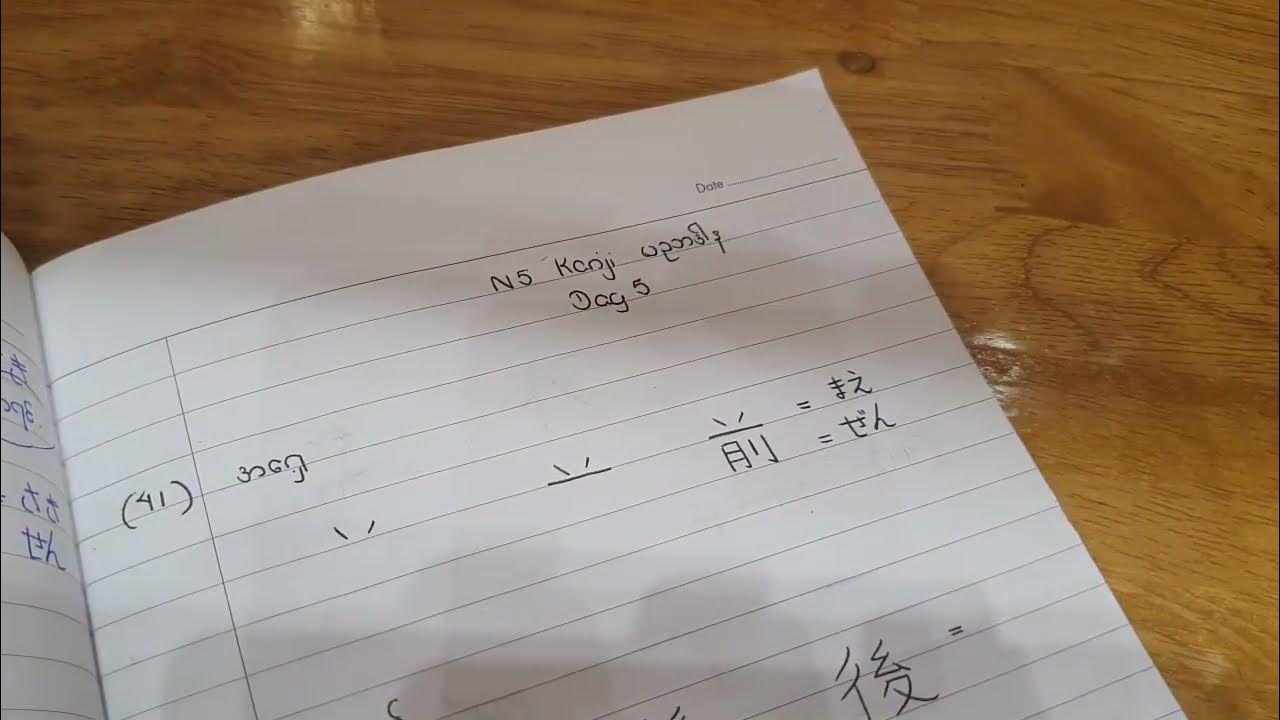 Date
N5 Kanji ပညာဒါန
Day 5
(41) အရှေ့
前 = まえ
= ぜん
後 =
ぜん